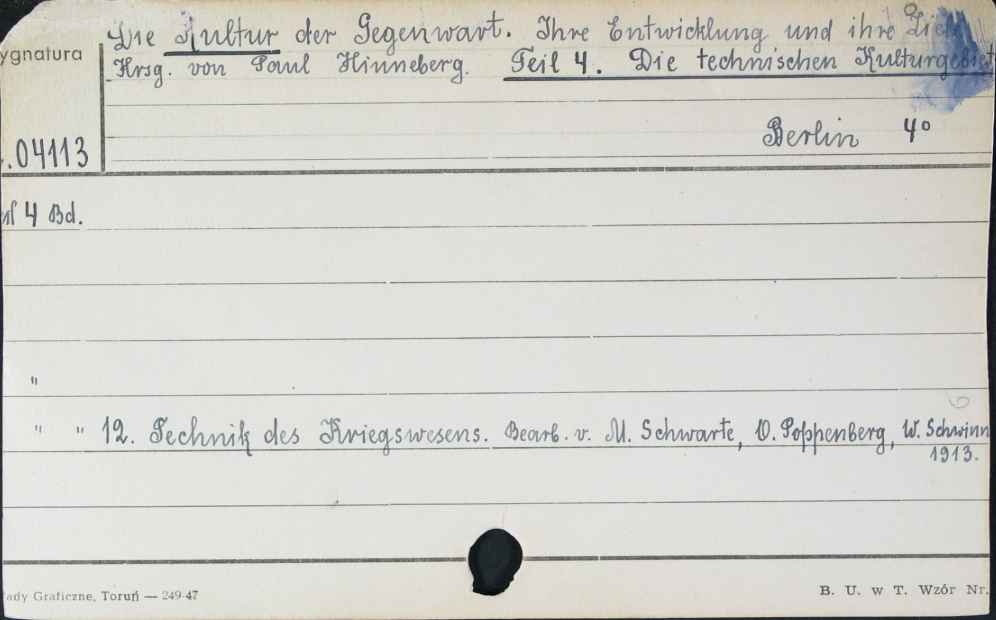 Die Kultur der Gegenwart. Ihre Entwicklung und ihre
Hrsg. von Paul Hinneberg. Teil 4. Die technischen Kulturgebiet
ygnatura
Berlin 4°
.04113
4 Bd.
"
" " 12. Technik des Kriegswesens. Bearb. v. M. Schwarte, O. Poppenberg, W. Schwinn
1913.
ady Graficzne, Toruń — 249-47
B. U. w T. Wzór Nr.